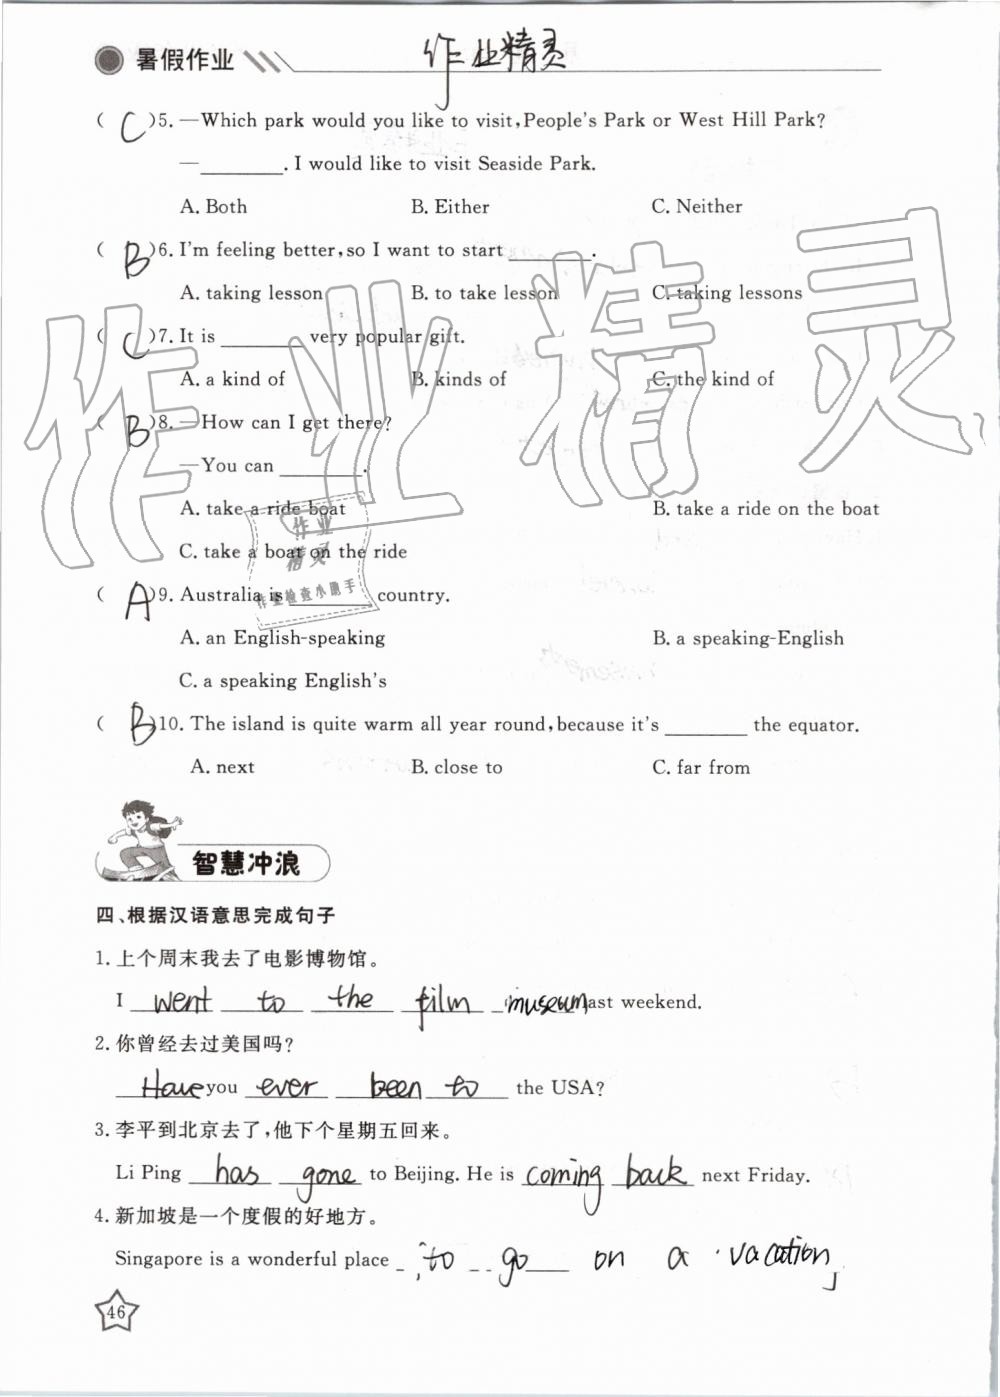 暑假作业 作业精灵
( C )5. —Which park would you like to visit,People's Park or West Hill Park?
—________. I would like to visit Seaside Park.
A. Both B. Either C. Neither
( B )6. I'm feeling better,so I want to start ________.
A. taking lesson B. to take lesson C. taking lessons
( C )7. It is ________ very popular gift.
A. a kind of B. kinds of C. the kind of
( B )8. —How can I get there?
—You can ________.
A. take a ride boat B. take a ride on the boat
C. take a boat on the ride
( A )9. Australia is ________ country.
A. an English-speaking B. a speaking-English
C. a speaking English's
( B )10. The island is quite warm all year round,because it's ________ the equator.
A. next B. close to C. far from
作业精灵
作业
精灵
作业检查小助手
智慧冲浪
四、根据汉语意思完成句子
1. 上个周末我去了电影博物馆。
I went to the film museum last weekend.
2. 你曾经去过美国吗?
Have you ever been to the USA?
3. 李平到北京去了,他下个星期五回来。
Li Ping has gone to Beijing. He is coming back next Friday.
4. 新加坡是一个度假的好地方。
Singapore is a wonderful place to go on a vacation
46